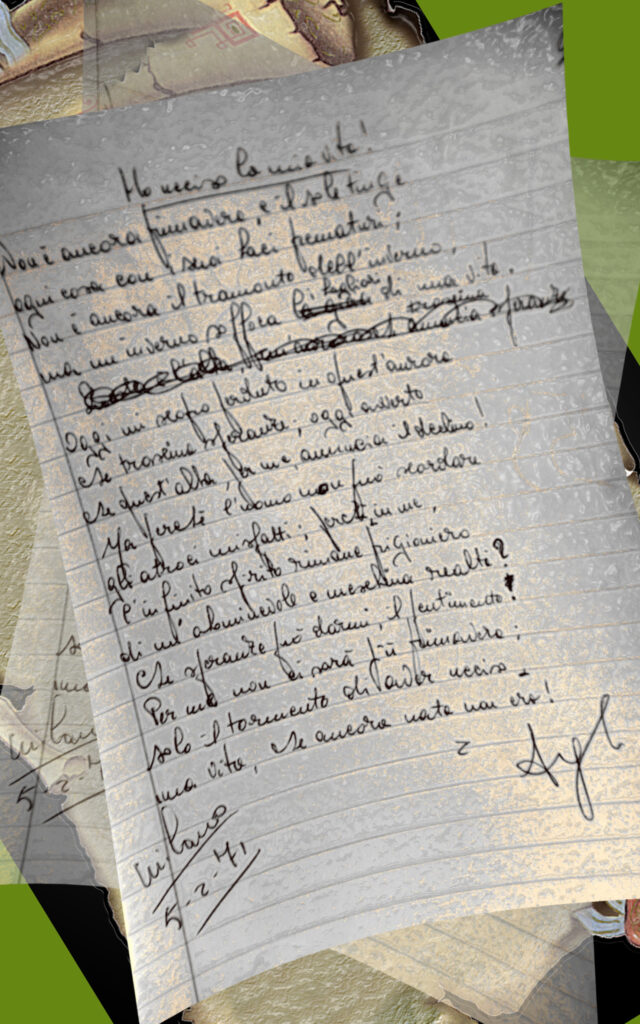 Ho ucciso la mia vita!
Non è ancora primavera, e il sole tinge
ogni cosa con i suoi baci prematuri;
Non è ancora il tramonto dell'inverno,
ma un inverno soffoca i germogli di una vita.
Oggi mi scopro perduto in quest'aurora
che prossima speranze, oggi avverto
che quest'alba, per me, annuncia il declino!
Ma perché l'uomo non può scordare
gli atroci misfatti; perché, in me,
l'infinito spirito rimane prigioniero
di un'abominevole e meschina realtà?
Che speranze può darmi, il pentimento!
Per me non ci sarà più primavera;
solo il tormento di aver ucciso
una vita, che ancora nata non era!
Milano
5-2-71